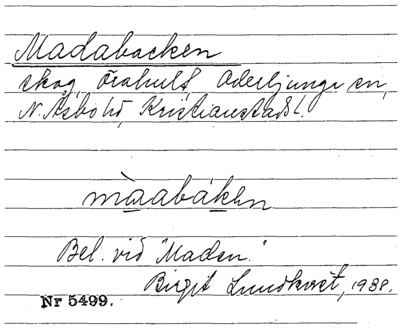 Madabacken
skog, Örahult, Oderljunga sn,
N. Åsbo hd, Kristianstads l.
màabáken
Bel. vid "Maden."
Birgit Lundkvist, 1938.
Nr 5499.